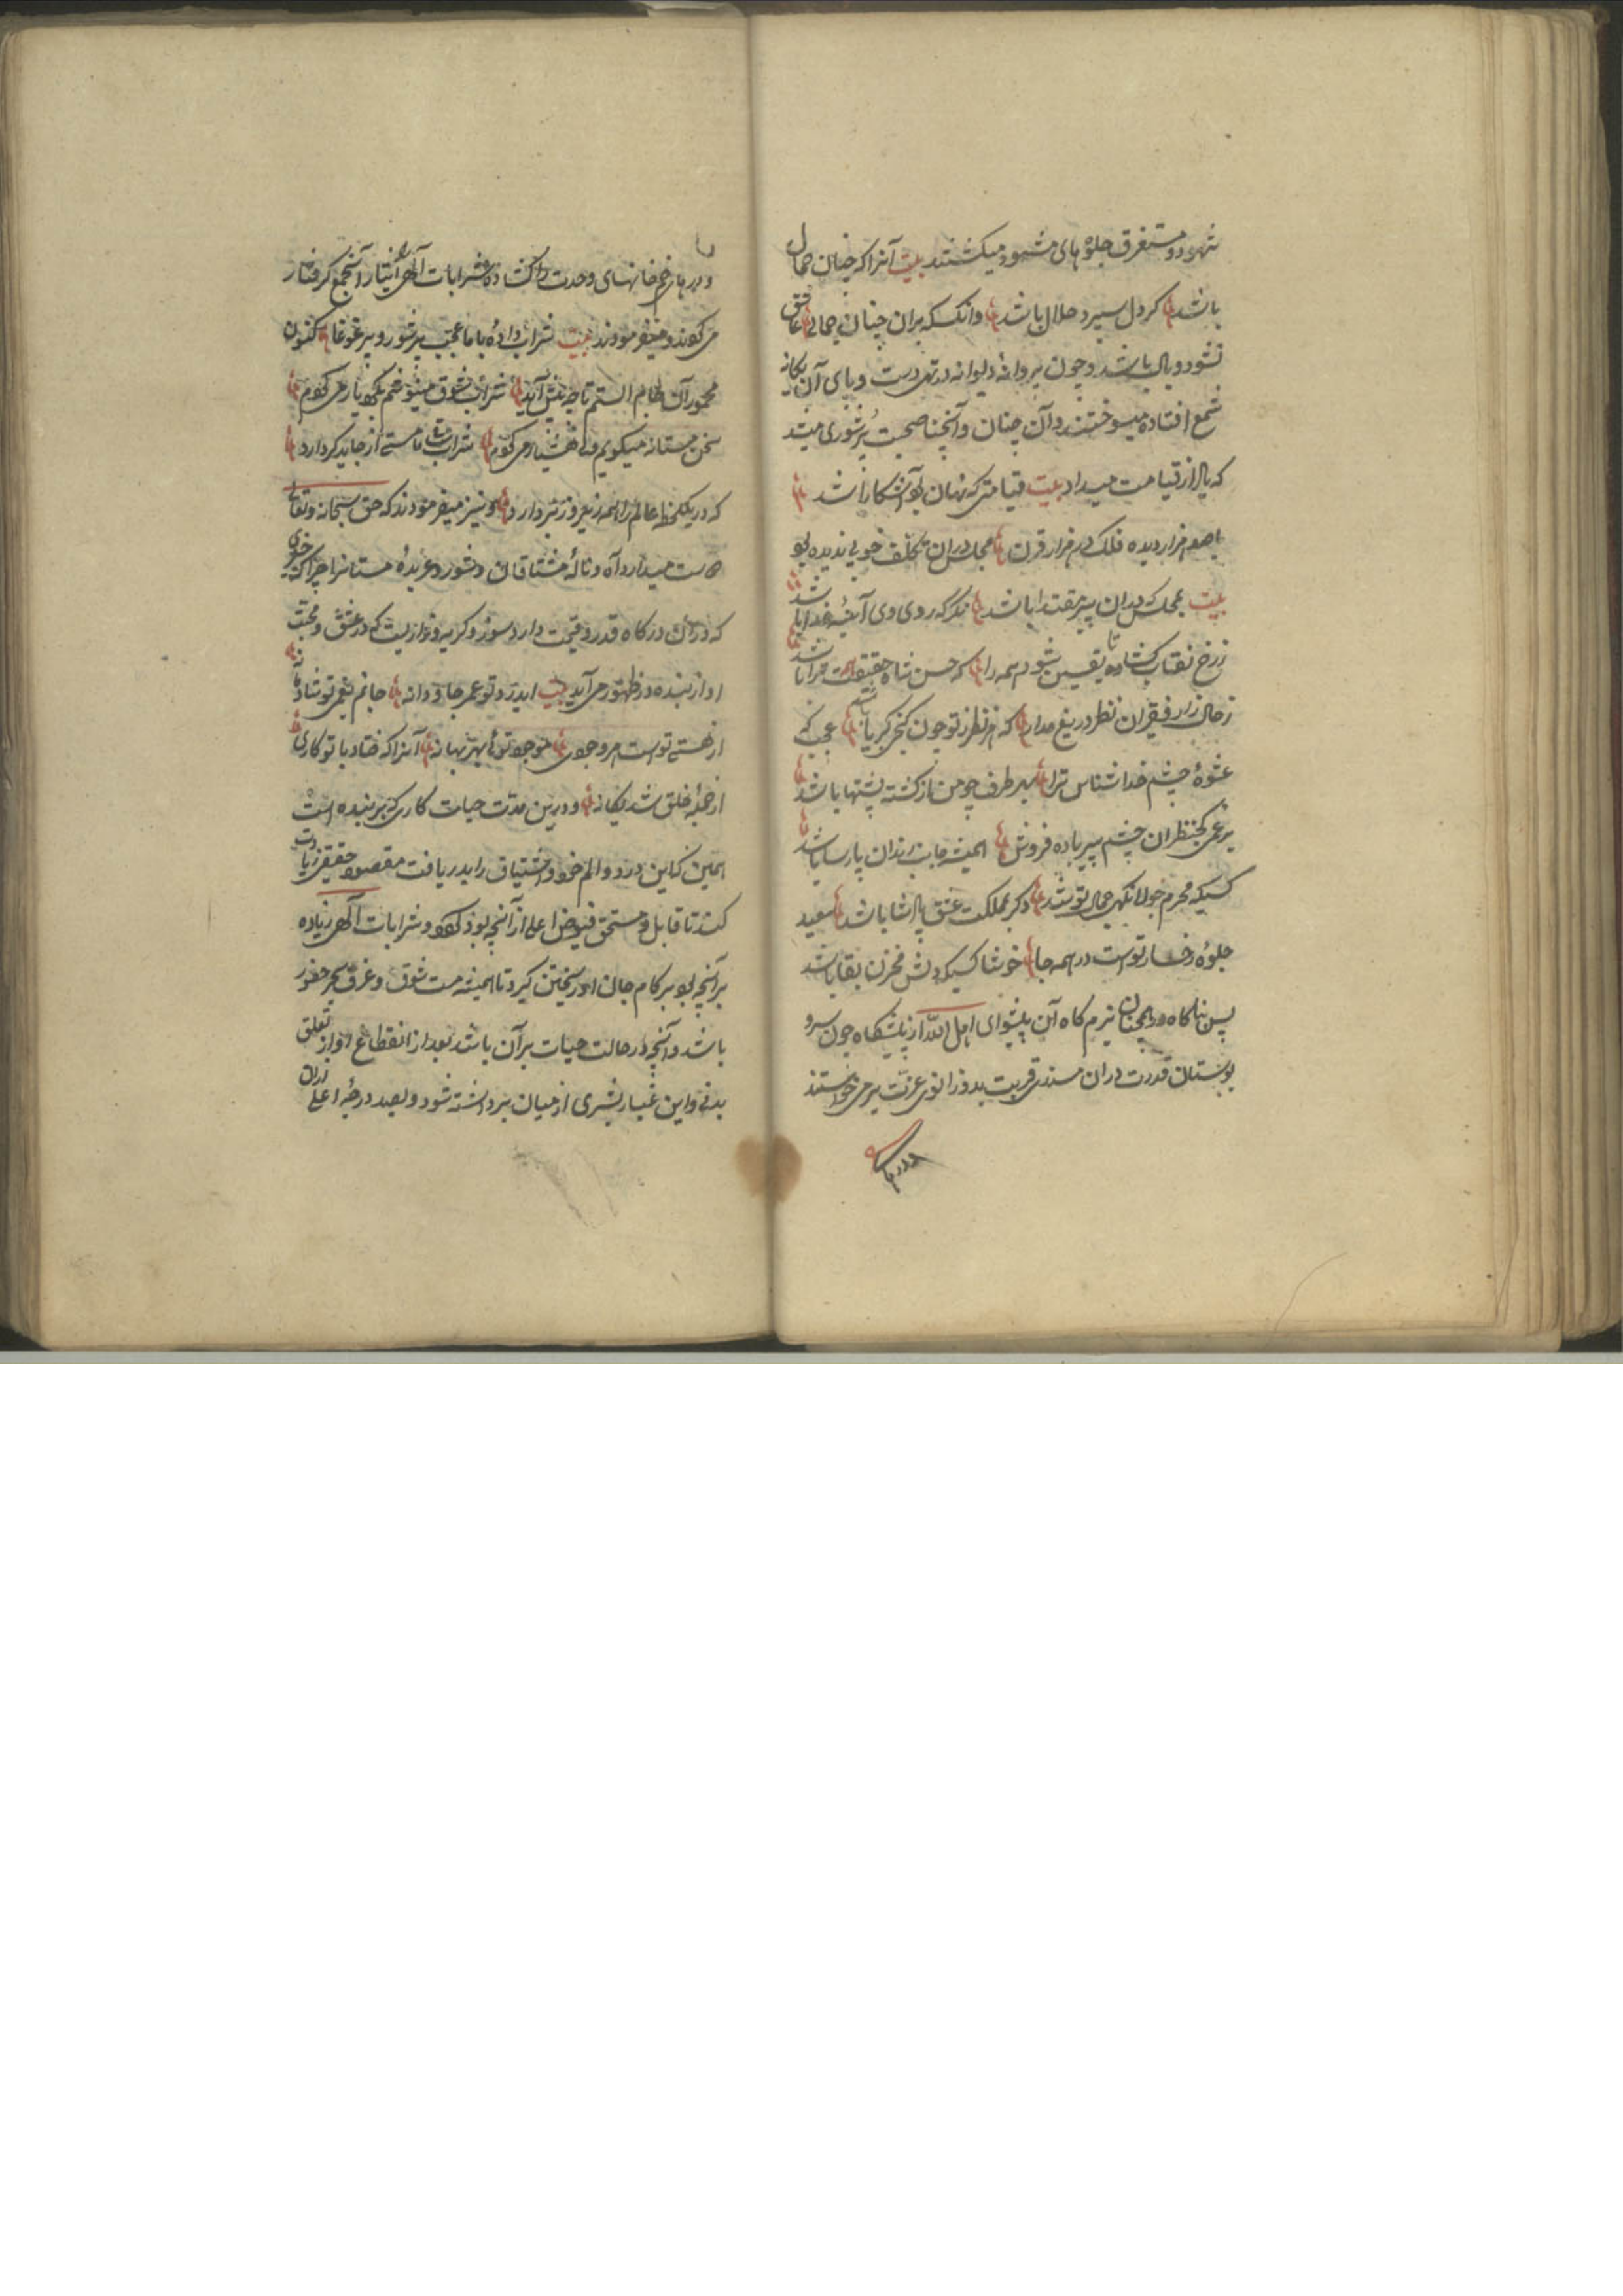 شهود و مستغرق جلوه های مشهود میکشتند بیت آنرا که چنان جمال
باشد کر دل سپرد حلال باشد وانکسکه بران چنان جمالی عاشق
نشود وبال باشد و چون پروانه دیوانه در تهی دست و پای آن یکانه
شمع افتاده میسوختند و آن چنان و آنچنا صحبت پر شوری میشد
که یاد از قیامت میداد بیت قیامتی که نهان بود آشکارا شد
باصد هزار دیده فلک در هزار قرن مجلس بدان تکلف خوبی ندیده بود
بیت بمجلسی که دران پیر مقتدا باشد نکر که روی وی آئینه خدا باشد
ز رخ نقاب کشاده تا یقین شود همه را که حسن شاه حقیقت ترا باشد
ز حال زار فقیران نظر دریغ مدار که هر نظر ز تو چون کنج کبریا باشد عجب که
عشوه چشم خدا شناس ترا بهر طرف چو من از کشته پشتها باشد
برغم کج نظران چشم پیر باده فروش همیشه جانب رندان پارسا باشد
کسیکه محرم جولانکه جمال تو شد دکر بمملکت عشق پادشا باشد سعید
جلوه رخسار توست در همه جا خوشا کسیکه دلش مخزن بقا باشد
پس ناکاه در همچنان بزم کاه آن پیشوای اهل الله از پیشکاه چون سرو
بوستان قدرت دران مسند قربت بدو زانوی عزت بر می خواستند
و درهای
و درهای خم خانهای وحدت را کشاده شرابات آلهی انیثار آنجمع کرفتار
می کردند و میفرمودند بیت شراب داده با ما عجب پر شور و پر غوغا کنون
مخمور آن جام الستم تا چه پیش آید شراب شوق مینوشم بکرد یار می کردم
سخن مستانه میکویم ولی هشیار می کردم شراب ما مستی از جاید کر دارد
که در یکلحظه عالم را همه زیر و زبر دارد و نیز میفرمودند که حق سبحانه و تعالی
دوست میدارد آه و ناله مشتاقان و شور و عربده مستانرا چرا که چیزی
که در آن درکاه قدر و قیمت دارد سوز و کریه و نوازیست که در عشق و محبت
او از بنده در ظهور می آید بیت ای درد تو عمر جاودانه جانم بغمی تو شادمانه
از هستی توست هر وجودی موجود توئی بهر بهانه آنرا که فتاد با تو کاری
از جمله خلق شد یکانه و درین مدت حیات کاری که بر بنده است
همین که این درد و الم خود و اشتیاق را بدریافت مقصود حقیقی زیادت
کند تا قابل و مستحق فیوض اعلی از آنچه بود کردد و شرابات آلهی زیاده
بر آنچه بود بر کام جان او ریختن کیرد تا همیشه مست شوق و غرق بحر حضور
باشد و آنچه در حالت حیات بر آن باشد بعد از انقطاع او از تعلق
بدنی و این غبار بشری از میان برداشته شود و بصد درجه اعلی از ان